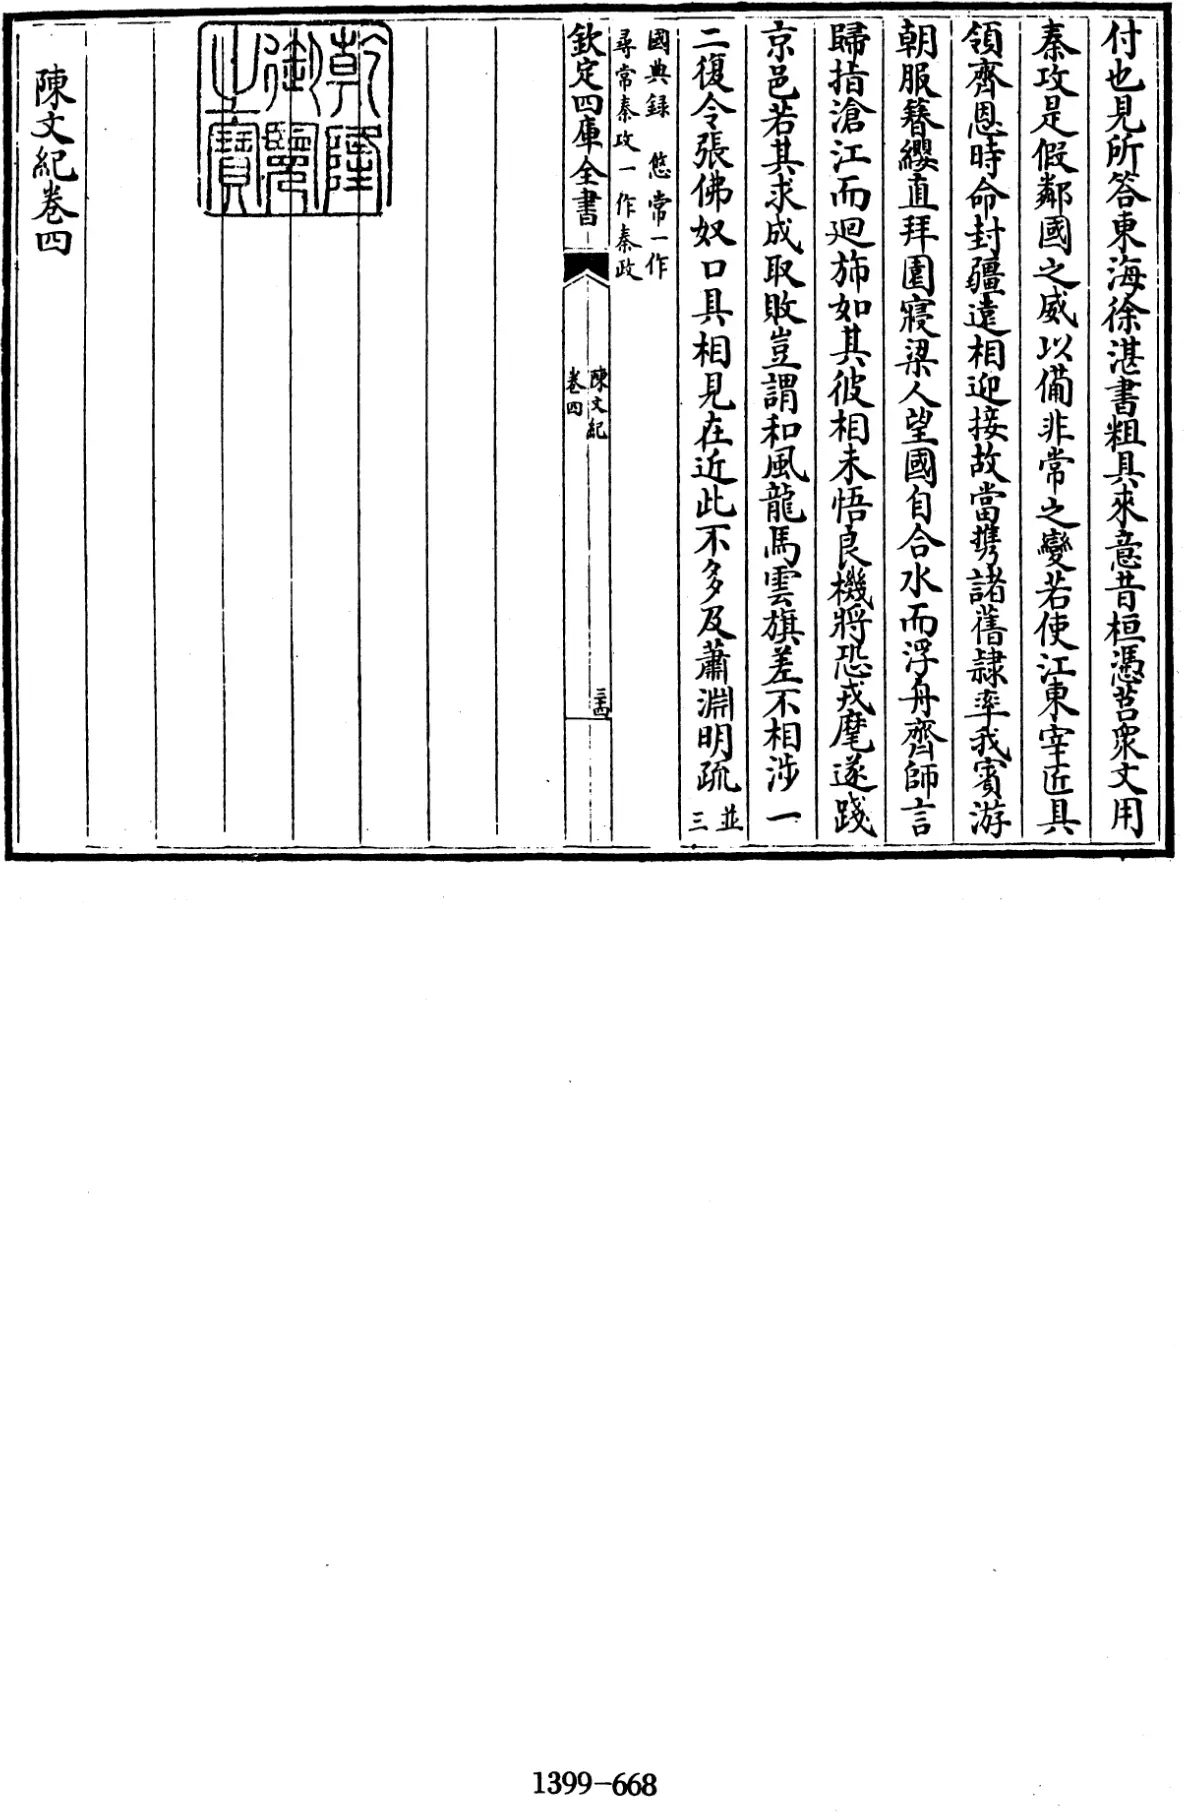 付也見所答東海徐湛書粗具來意昔桓憑苕衆文用
秦攻是假鄰國之威以備非常之變若使江東宰匠具
領齊恩時命封疆遠相迎接故當攜諸舊隷率我賓游
朝服簪纓直拜園寢梁人望國自合水而浮舟齊師言
歸指滄江而迴斾如其彼相未悟良機將恐戎麾遂踐
京邑若其求成取敗豈謂和風龍馬雲旗差不相涉一
二復令張佛奴口具相見在近此不多及蕭淵明疏並三
國典録 悠常一作
尋常秦攻一作秦政
欽定四庫全書
陳文紀
卷四
三十四
乾隆御覽之寶
陳文紀卷四
1399-668